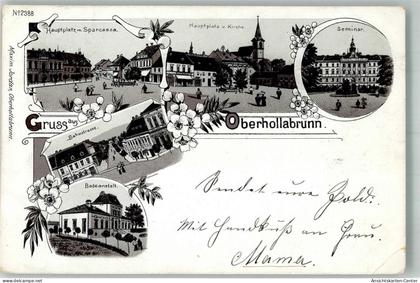 No 2988
Hauptplatz m. Sparcassa.
Hauptplatz u. Kirche.
Seminar.
Gruss aus Oberhollabrunn.
Bahnstrasse.
Badeanstalt.
Sendet eure Poldi.
Mit Handkuß an Frau
Mama.
Ansichtskarten-Center